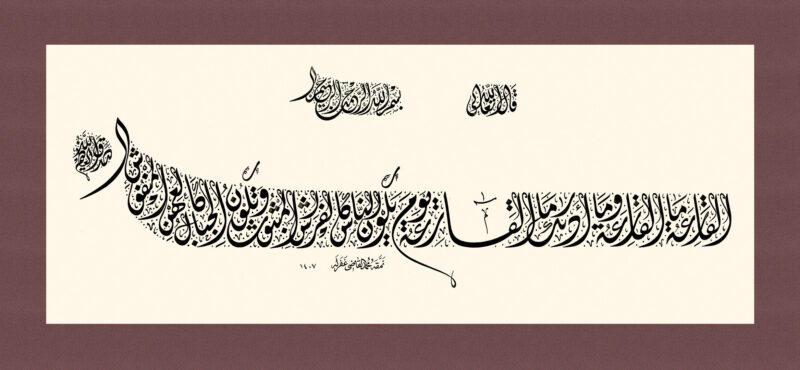 قال الله تعالى
بسم الله الرحمن الرحيم
القارعة ما القارعة وما أدراك ما القارعة يوم يكون الناس كالفراش المبثوث وتكون الجبال كالعهن المنفوش
صدق الله العظيم
نمقه محمد القاضي غفر له ١٤٠٧